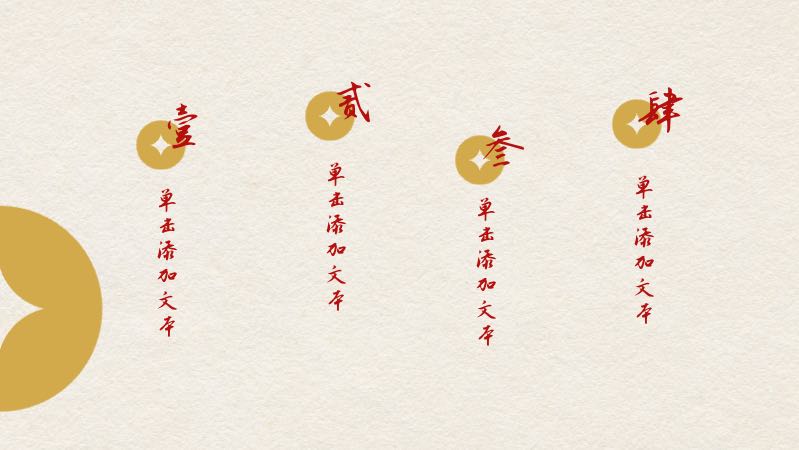 壹
单击添加文本
贰
单击添加文本
叁
单击添加文本
肆
单击添加文本